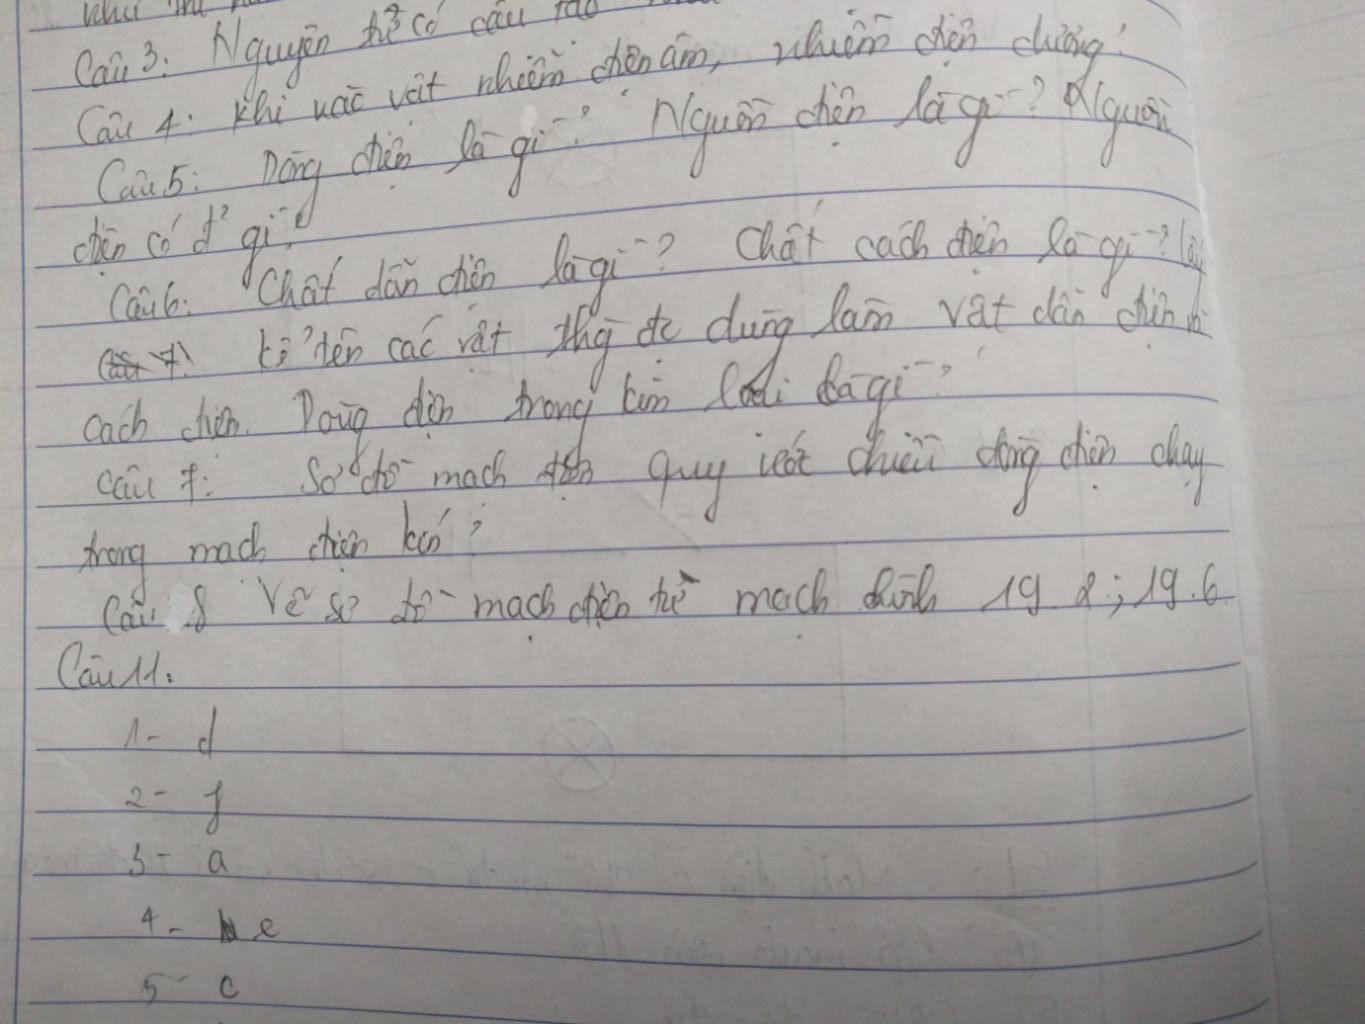 như thế nào
Câu 3: Nguyên tử có cấu tạo
Câu 4: Khi nào vật nhiễm điện âm, nhiễm điện dương?
Câu 5: Dòng điện là gì? Nguồn điện là gì? Nguồn
điện có đ² gì?
Câu 6: Chất dẫn điện là gì? Chất cách điện là gì? lấy
kể tên các vật thg đc dùng làm vật dẫn điện và
cách điện. Dòng điện trong kim loại là gì?
Câu 7: Sơ đồ mạch điện quy ước chiều dòng điện chạy
trong mạch điện kín?
Câu 8 Vẽ sơ đồ mạch điện từ mạch hình 19.2; 19.6
Câu 11:
1- d
2- f
3- a
4- e
5- c